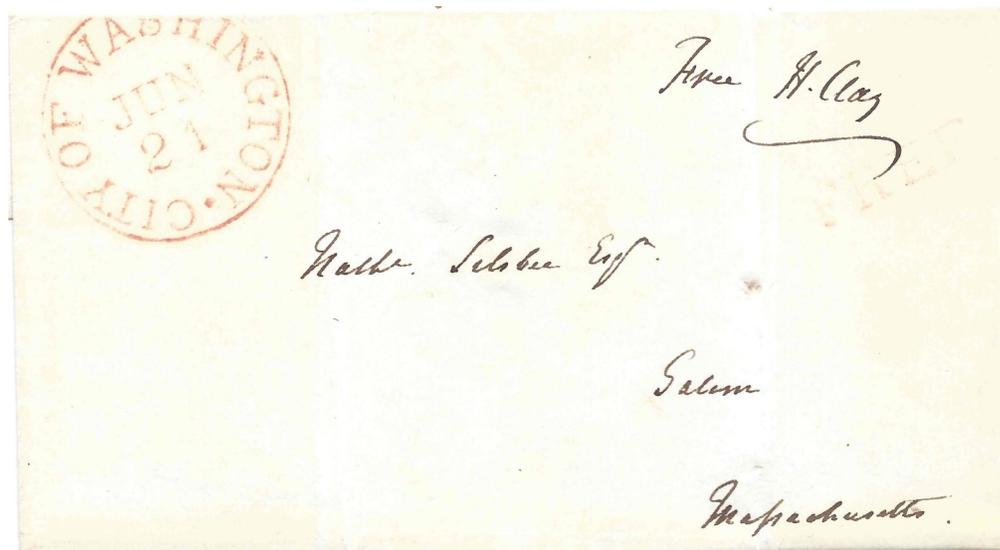 CITY OF WASHINGTON.
JUN
21
Free H. Clay
FREE
Nathl. Silsbee Esqr.
Salem
Massachusetts.